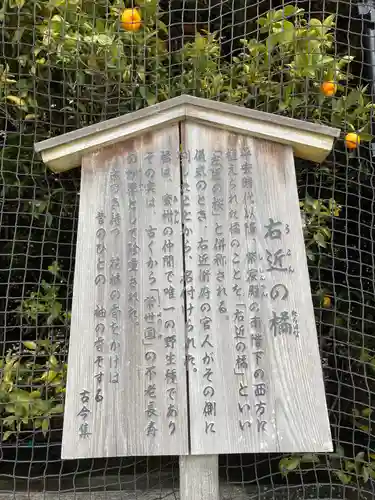 右近の橘
うこん
たちばな
平安時代以降、紫宸殿の南階下の西方に
ししんでん
植えられた橘のことを「右近の橘」といい
「左近の桜」と併称された。
儀式のとき、右近衛府の官人がその側に
列したことから、名付けられた。
橘は、蜜柑の仲間で唯一の野生種であり
みかん
その実は、古くから「常世国」の不老長寿
の妙薬として珍重された。
五月待つ 花橘の香をかげば
昔のひとの 袖の香ぞする
古今集